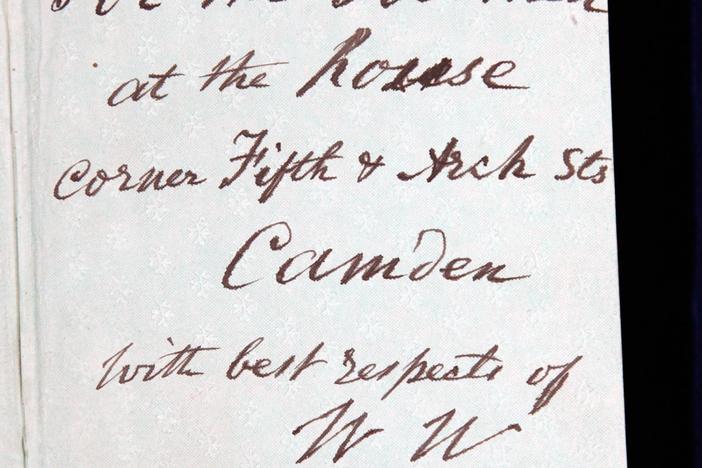 at the house
corner Fifth & Arch Sts
Camden
with best respects of
W W